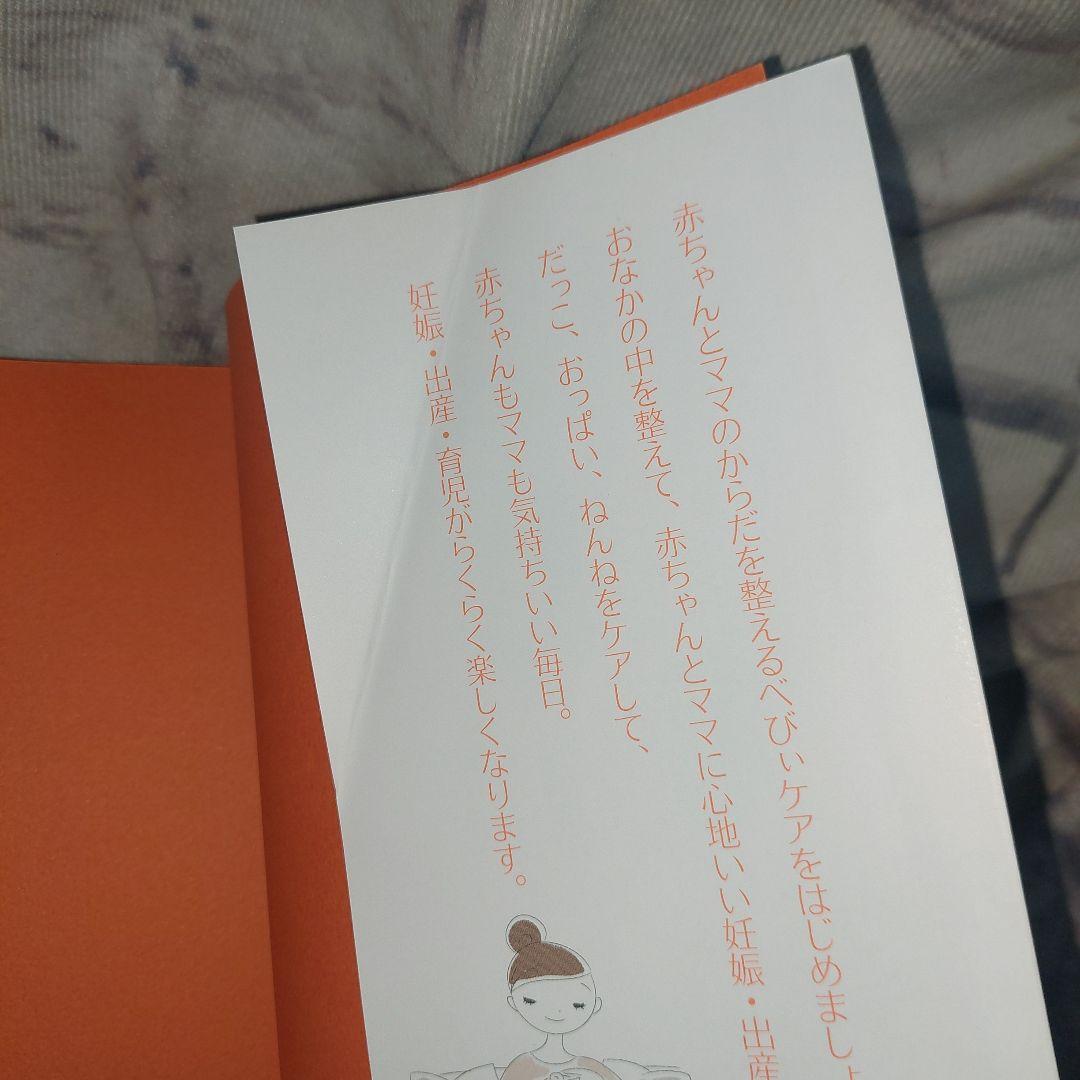 赤ちゃんとママのからだを整えるべびぃケアをはじめましょ
おなかの中を整えて、赤ちゃんとママに心地いい妊娠・出産
だっこ、おっぱい、ねんねをケアして、
赤ちゃんもママも気持ちいい毎日。
妊娠・出産・育児がらくらく楽しくなります。